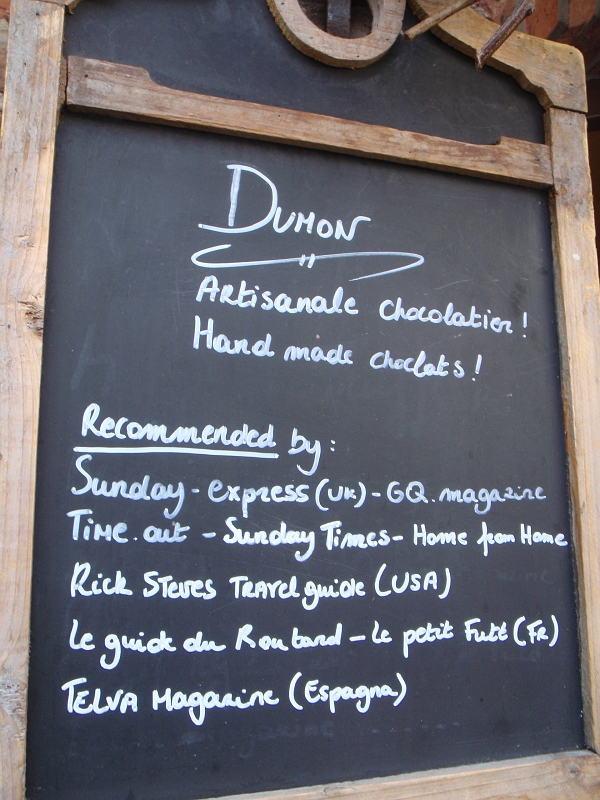 DUMON
Artisanale chocolatier!
Hand made choclats!
Recommended by:
Sunday - express (UK) - GQ. magazine
Time.out - Sunday Times - Home from Home
Rick Steves Travel guide (USA)
Le guide du Routard - Le petit Futé (FR)
TELVA Magazine (Espagna)